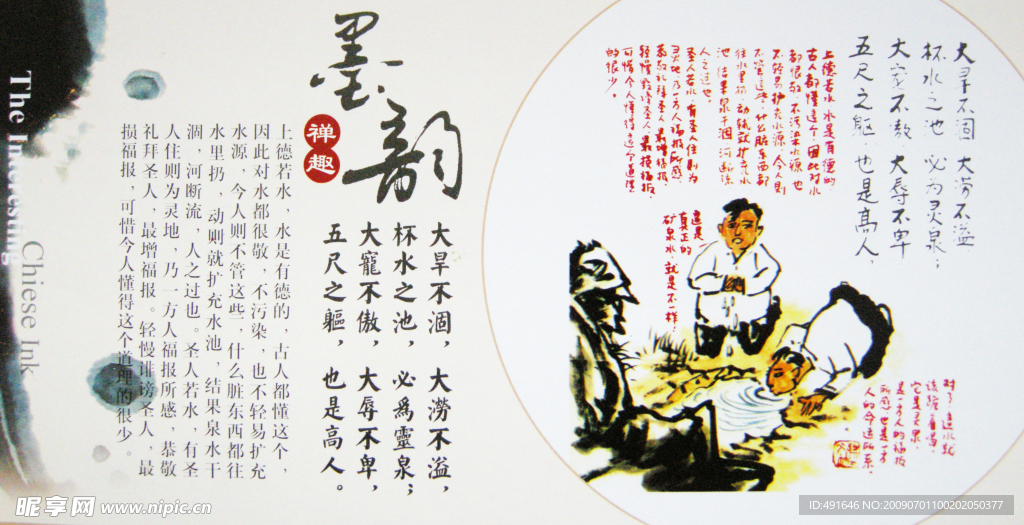 墨韵
禅趣
大旱不涸，大涝不溢，
杯水之池，必為靈泉；
大寵不傲，大辱不卑，
五尺之軀，也是高人。
上德若水，水是有德的，古人都懂这个，
因此对水都很敬，不污染，也不轻易扩充
水源，今人则不管这些，什么脏东西都往
水里扔，动则就扩充水池，结果泉水干
涸，河断流，人之过也。圣人若水，有圣
人住则为灵地，乃一方人福报所感，恭敬
礼拜圣人，最增福报。轻慢诽谤圣人，最
损福报，可惜今人懂得这个道理的很少。
The Interesting
Chiese Ink
大旱不涸 大涝不溢
杯水之池 必为灵泉；
大宠不傲 大辱不卑
五尺之躯，也是高人，
上德若水 水是有德的
古人都懂这个 因此对水
都很敬 不污染水源 也
不轻易扩充水源 今人则
不管这些 什么脏东西都
往水里扔 动辄就扩充水
池 结果泉干涸 河断流
人之过也
圣人若水 有圣人住则为
灵地 乃一方人福报所感
恭敬礼拜圣人 最增福报
轻慢诽谤圣人 最损福报
可惜今人懂得这个道理
的很少。
这是
真正的
矿泉水，就是不一样，
对了 这水就
该跪着喝
它是灵泉
是一方人的福报
所感 也是一方
人的命运所系
昵享网 www.nipic.cn
ID:491646 NO:20090701100202050377